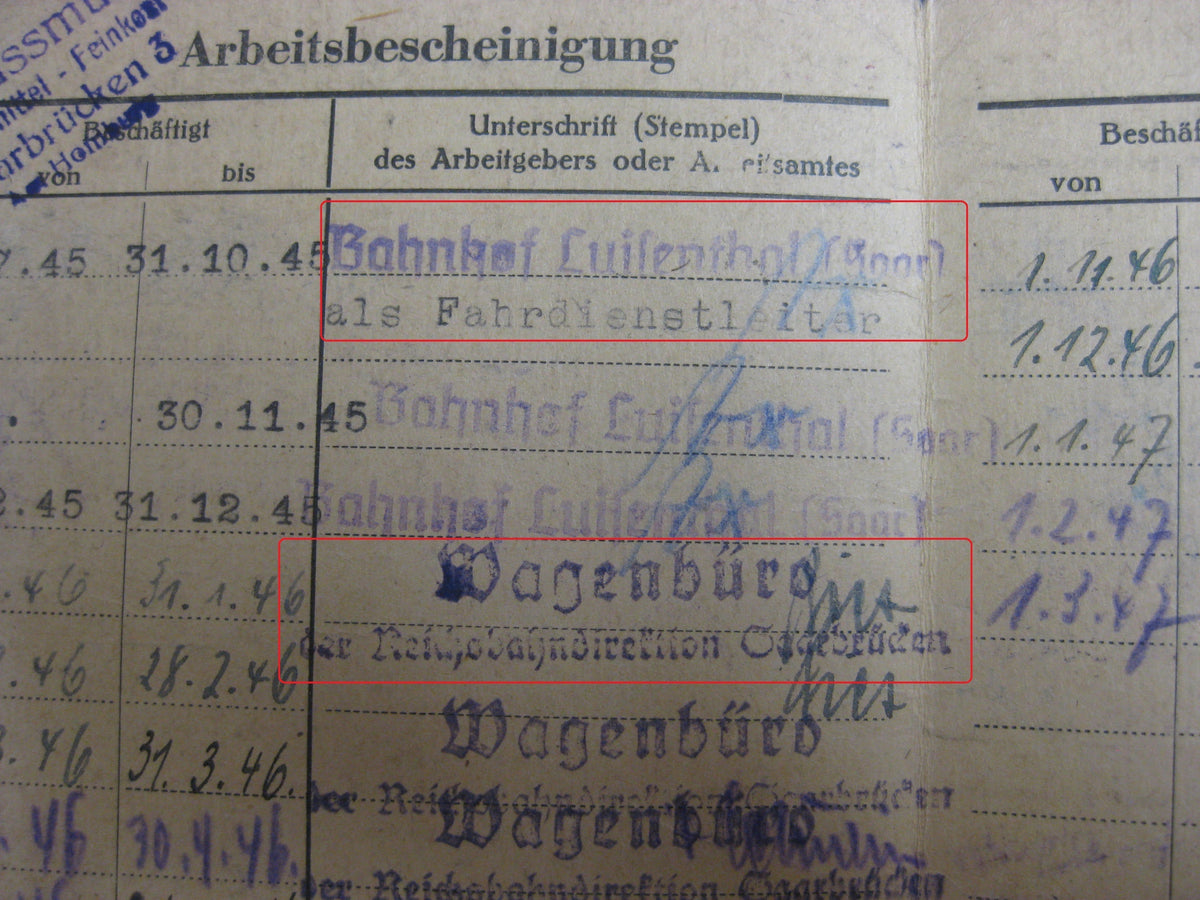 Feinkost
Saarbrücken 3
Arbeitsbescheinigung
Beschäftigt
von
bis
Unterschrift (Stempel)
des Arbeitgebers oder A. eitsamtes
.45 31.10.45 Bahnhof Luisenthal (Saar)
als Fahrdienstleiter
. 30.11.45 Bahnhof Luisenthal (Saar)
2.45 31.12.45 Bahnhof Luisenthal (Saar)
.46 31.1.46 Wagenbüro
der Reichsbahndirektion Saarbrücken
.46 28.2.46
3.46 31.3.46. Wagenbüro
der Reichsbahndirektion Saarbrücken
.46 30.4.46. Wagenbüro
der Reichsbahndirektion Saarbrücken
Beschäf
von
1.11.46
1.12.46
1.1.47
1.2.47
1.3.47